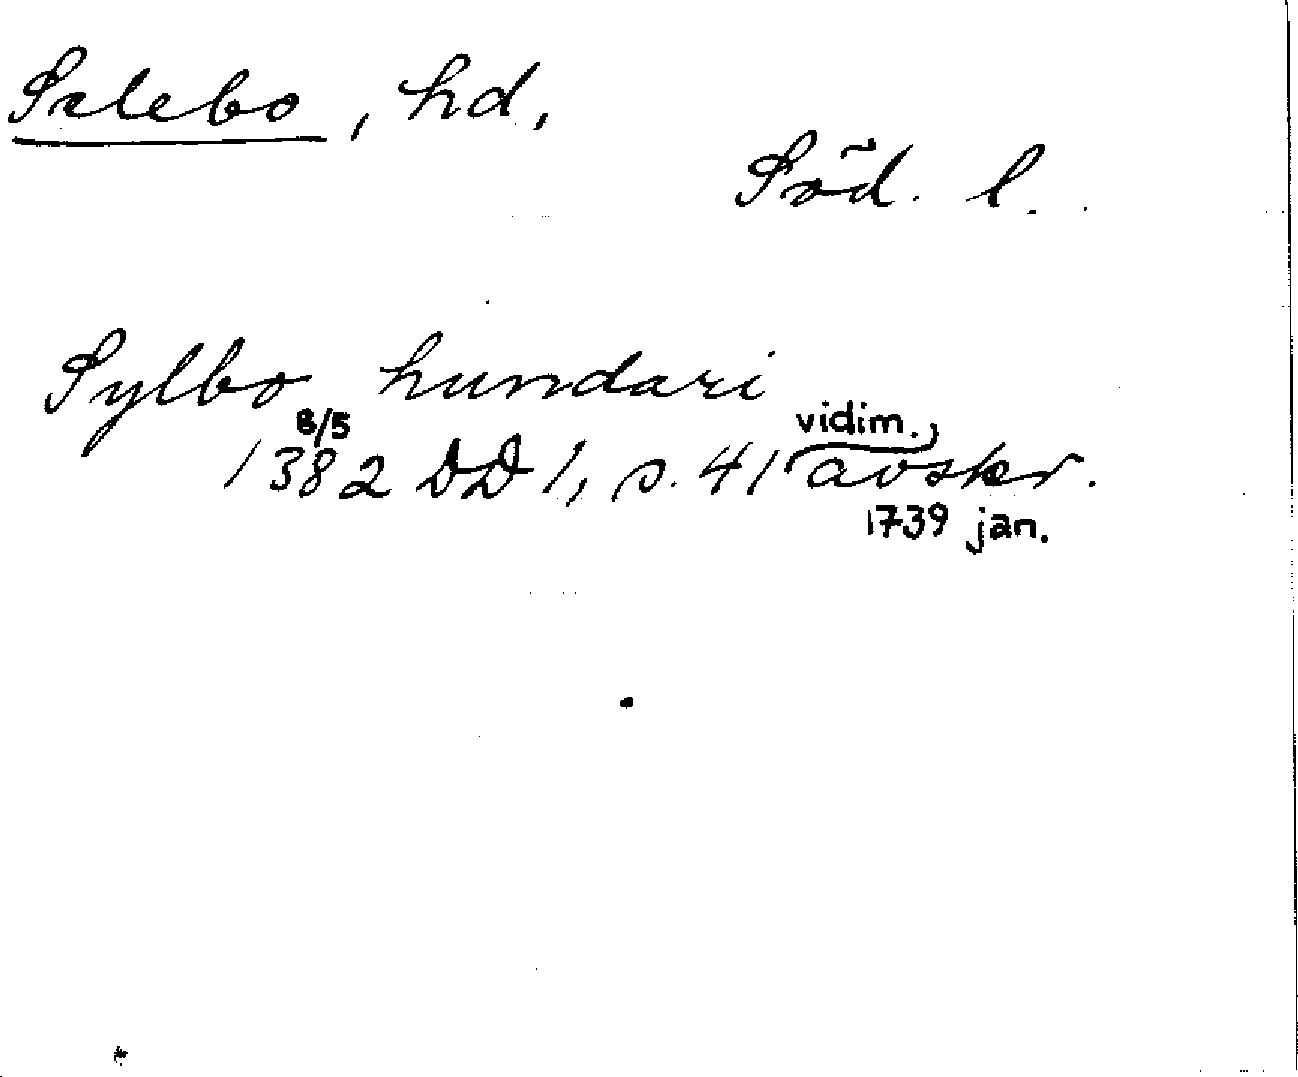 Selebo, hd,
Söd. l.
Sylbo hundari
8/5 vidim.,
1382 DD 1, s. 41 avskr.
1739 jan.